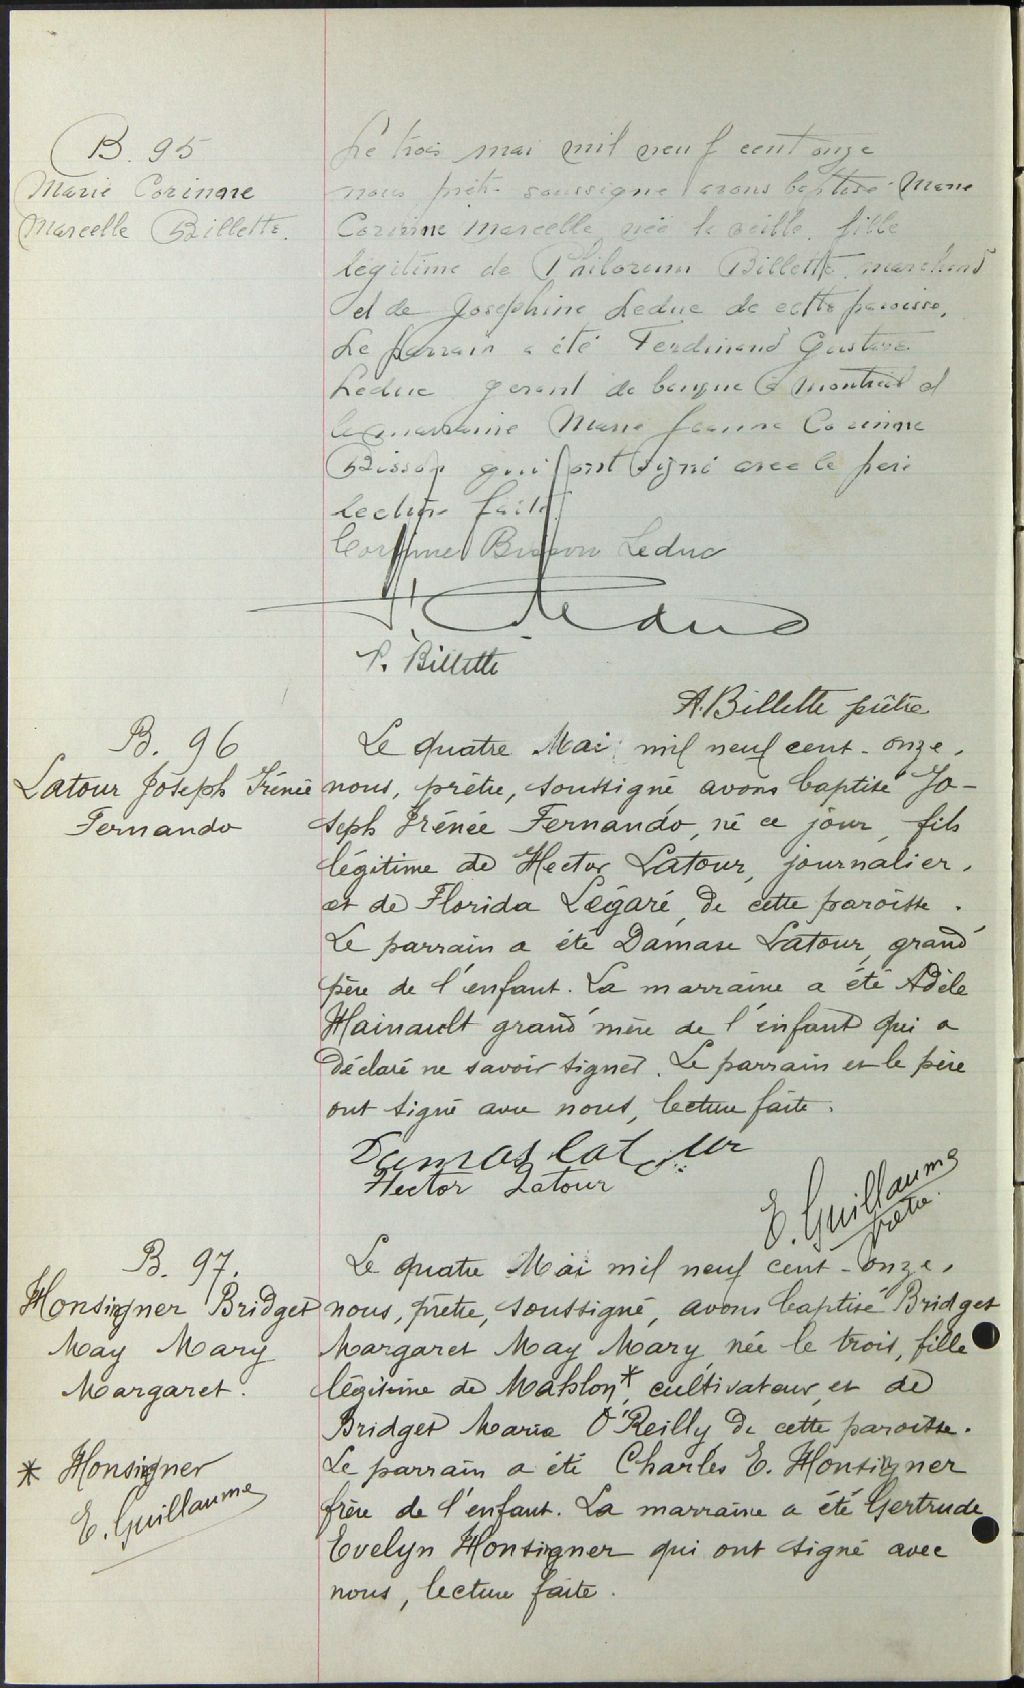 B. 95
Marie Corinne
Marcelle Billette.
Le trois mai mil neuf cent onze
nous prêtre soussigné avons baptisé Marie
Corinne Marcelle née la veille, fille
légitime de Billette, marchand
et de Josephine Leduc de cette paroisse,
Le parrain a été Ferdinand Gustave
Leduc gerant de banque à Montréal et
la marraine Marie Jeanne Corinne
Bisson qui ont signé avec le père
lecture faite.
Corinne Bisson Leduc
Leduc
P. Billette
A. Billette prêtre
B. 96
Latour Joseph Irénée
Fernando
Le quatre Mai mil neuf cent-onze,
nous, prêtre, soussigné avons baptisé Jo-
seph Irénée Fernando, né ce jour, fils
légitime de Hector Latour, journalier,
et de Florida Légaré, de cette paroisse.
Le parrain a été Damase Latour, grand
père de l'enfant. La marraine a été Adèle
Hainault grand'mère de l'enfant qui a
déclaré ne savoir signer. Le parrain et le père
ont signé avec nous, lecture faite.
Damas Latour
Hector Latour
E. Guillaume
prêtre.
B. 97.
Honsigner Bridget
May Mary
Margaret.
* Honsigner
E. Guillaume
Le quatre Mai mil neuf cent-onze,
nous, prêtre, soussigné, avons baptisé Bridget
Margaret May Mary, née le trois, fille
légitime de Mahlon,* cultivateur, et de
Bridget Maria O'Reilly de cette paroisse.
Le parrain a été Charles E. Honsigner
frère de l'enfant. La marraine a été Gertrude
Evelyn Honsigner qui ont signé avec
nous, lecture faite.